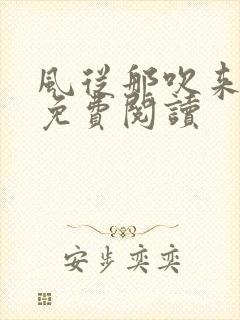 風從那吹来
免費閱讀
安步奕奕